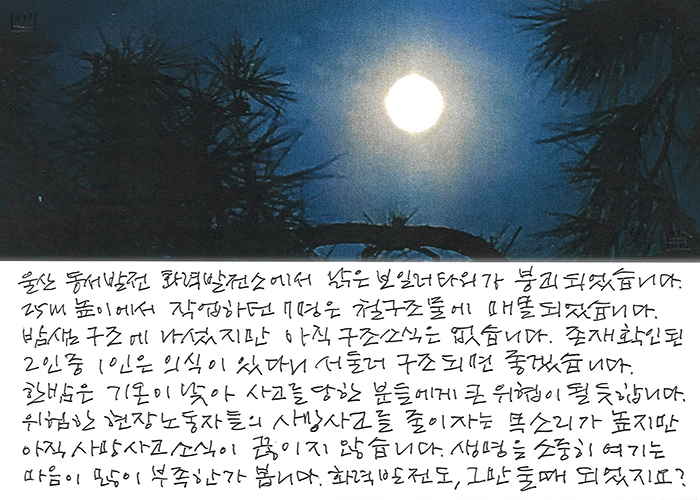 울산 동서발전 화력발전소에서 낡은 보일러타워가 붕괴되었습니다.
25m 높이에서 작업하던 7명은 철구조물에 매몰되었습니다.
밤샘 구조에 나섰지만 아직 구조소식은 없습니다. 존재확인된
2인중 1인은 의식이 있다니 서둘러 구조되면 좋겠습니다.
한밤은 기온이 낮아 사고를 당한 분들에게 큰 위협이 될 듯합니다.
위험한 현장노동자들의 사망사고를 줄이자는 목소리가 높지만
아직 사망사고 소식이 끊이지 않습니다. 생명을 소중히 여기는
마음이 많이 부족한가 봅니다. 화력발전도, 그만 둘때 되었지요?